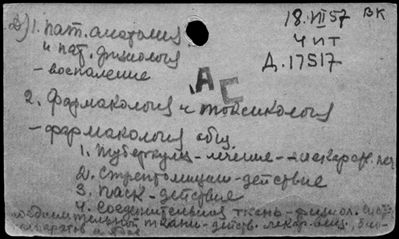 18.VII 57 ВК
2) 1. пат. анатомия
ЧИТ
и пат. физиология
Д.17517
- воспаление
АС
2. Фармакология и токсикология
- фармакология общ
1. туберкул - лечение -
2. стрептомицин - действие
3. ПАСК - действие
4. соединительная ткань - физиол.
соединительной ткани - действ. лекар. вещ.